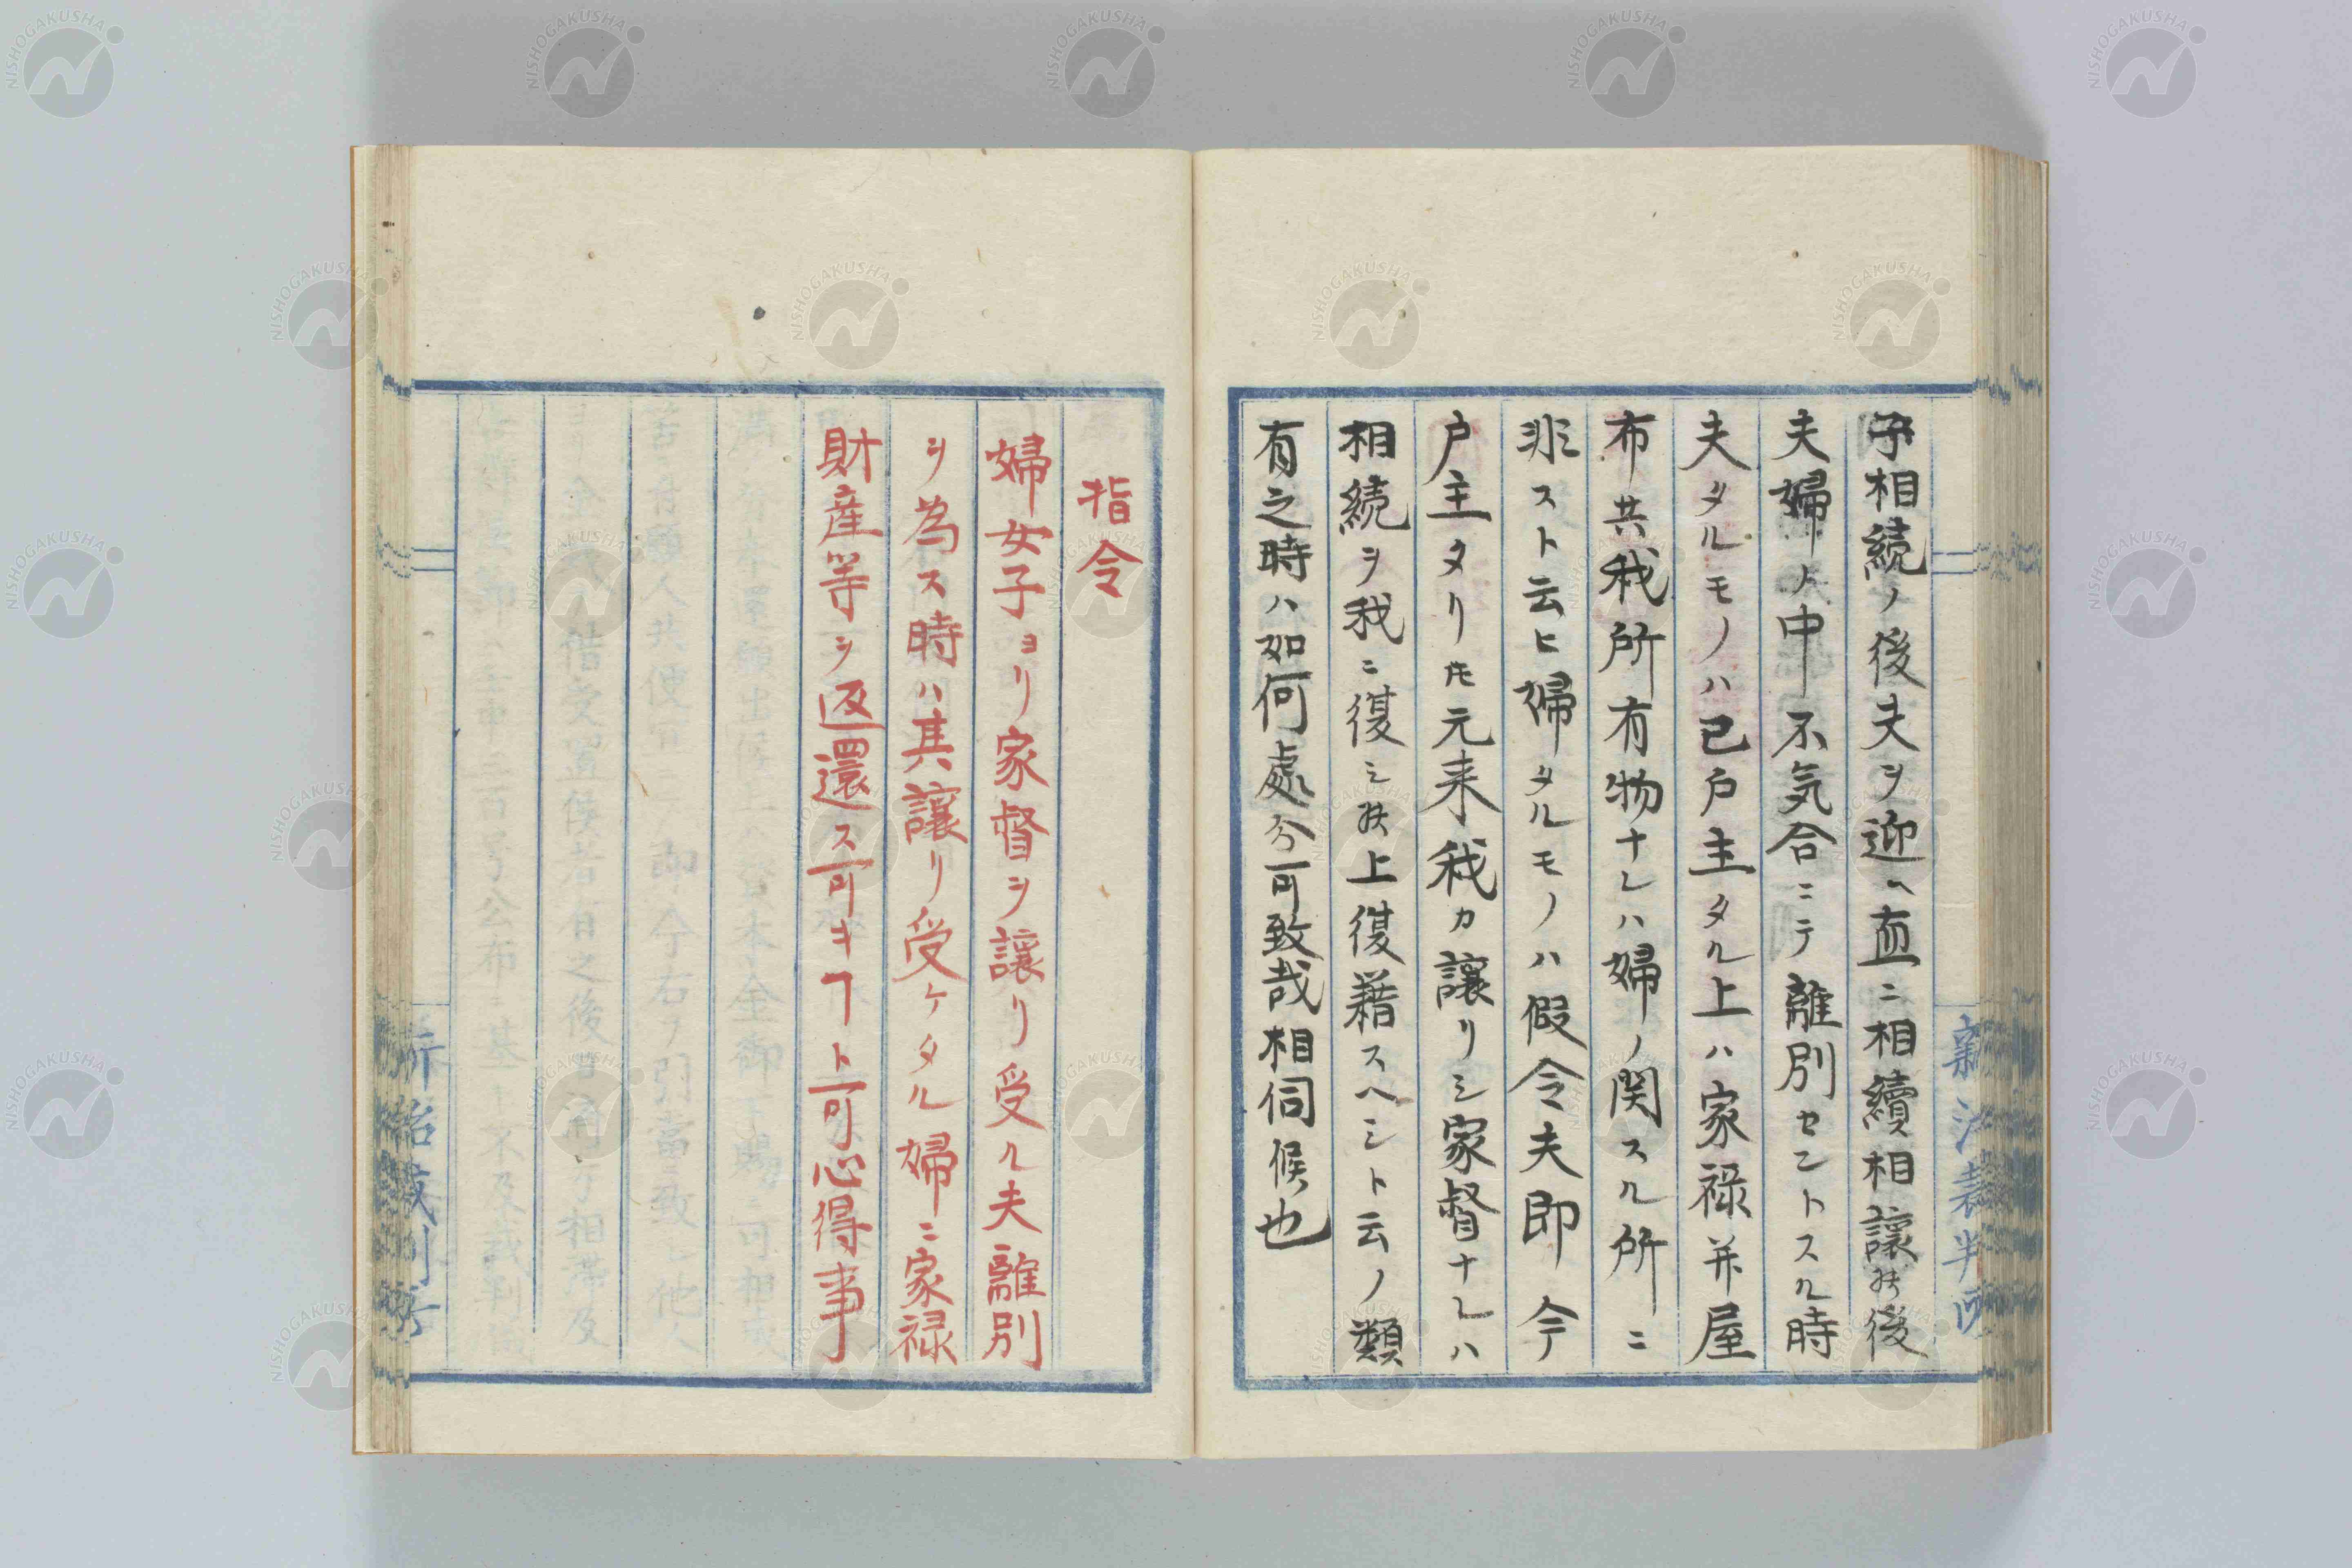 子相続ノ後夫ヲ迎ヘ直ニ相續相譲候後
夫婦ノ中不気合ニテ離別セントスル時
夫タルモノハ已戸主タル上ハ家禄并屋
布共我所有物ナレハ婦ノ関スル所ニ
非スト云ヒ婦タルモノハ假令夫即今
戸主タリ𪜈元来我カ譲リシ家督ナレハ
相続ヲ我ニ復シ候上復藉スヘシト云ノ類
有之時ハ如何處分可致哉相伺候也
指令
婦女子ヨリ家督ヲ譲リ受ル夫離別
ヲ為ス時ハ其譲リ受ケタル婦ニ家禄
財産等ヲ返還ス可キヿト可心得事
新治裁判所